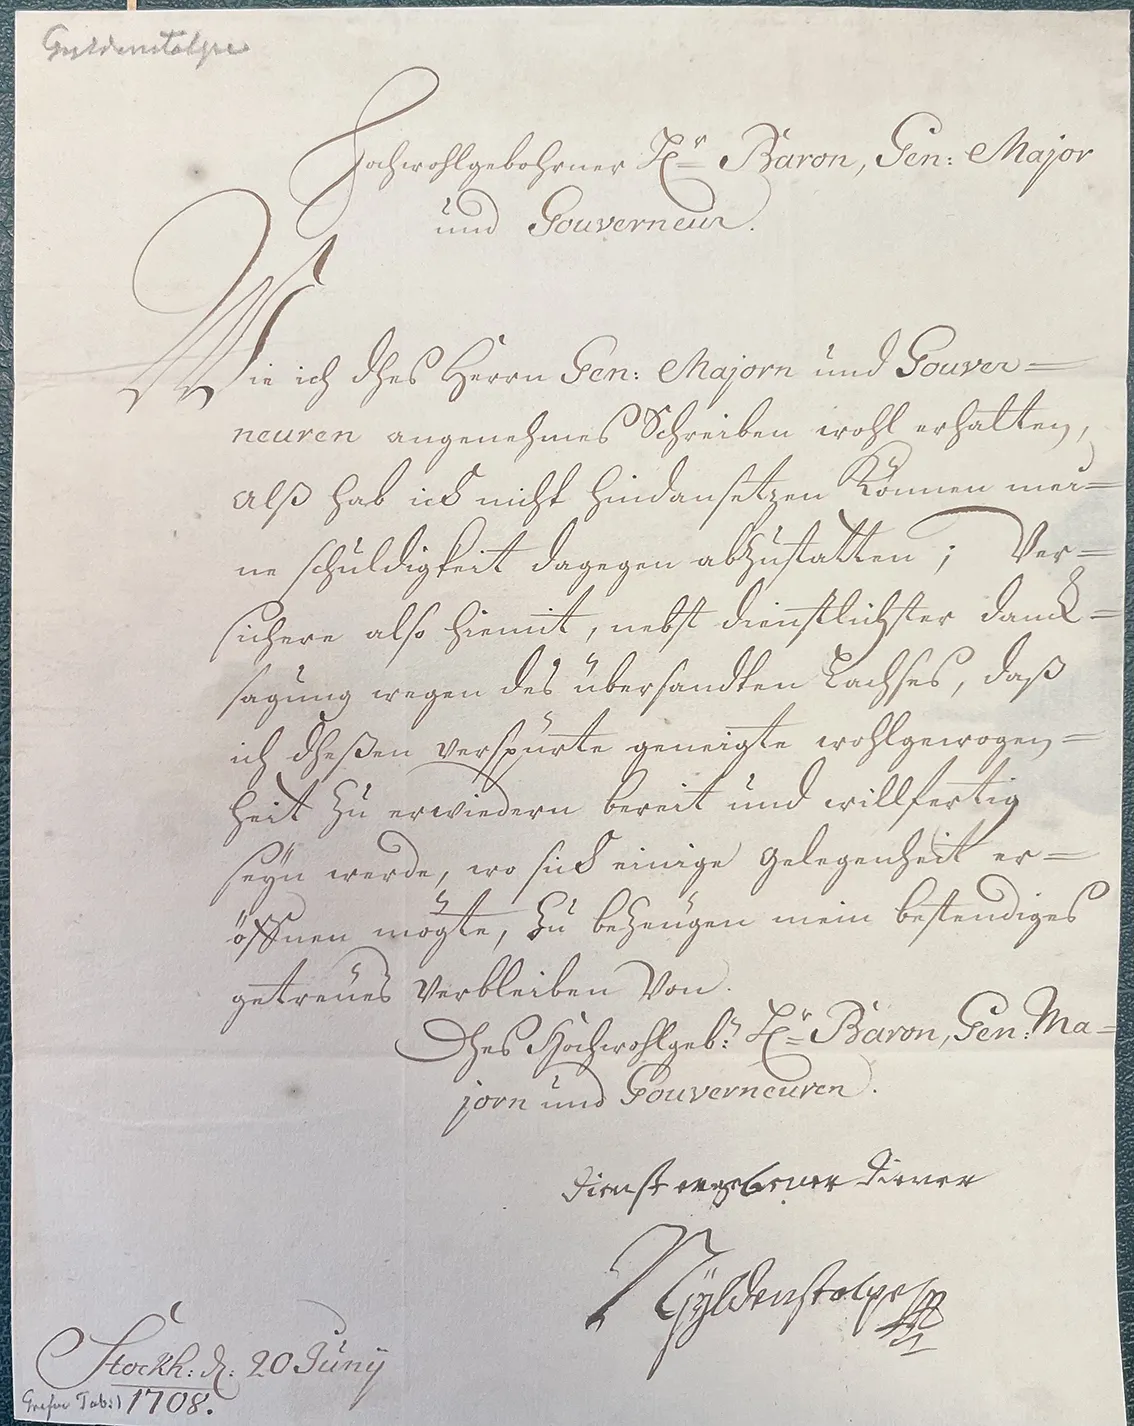 Gyldenstolpe
Hochwohlgebohrner Hr Baron, Gen: Major
und Gouverneur.
Wie ich dhes Herrn Gen: Majorn und Gouver=
neuren angenehmes Schreiben wohl erhalten,
Alß hab ich nicht hindansetzen Können mei=
ne schuldigkeit dagegen abzustatten; Ver=
sichere also hiemit, nebst dienstlichster danck=
sagung wegen des übersandten Lachses, daß
ich dheßen verspürte geneigte wohlgewogen=
heit zu erwiedern bereit und willfertig
seÿn werde, wo sich einige gelegenheit er=
öffnen mögte, zu bezeugen mein bestendiges
getreues Verbleiben Von.
Dhes Hochwohlgeb: Hr Baron, Gen: Ma=
jorn und Gouverneuren.
Dienst ergebener Diener
NGÿldenstolpe
Stockh: d: 20 Junÿ
1708.